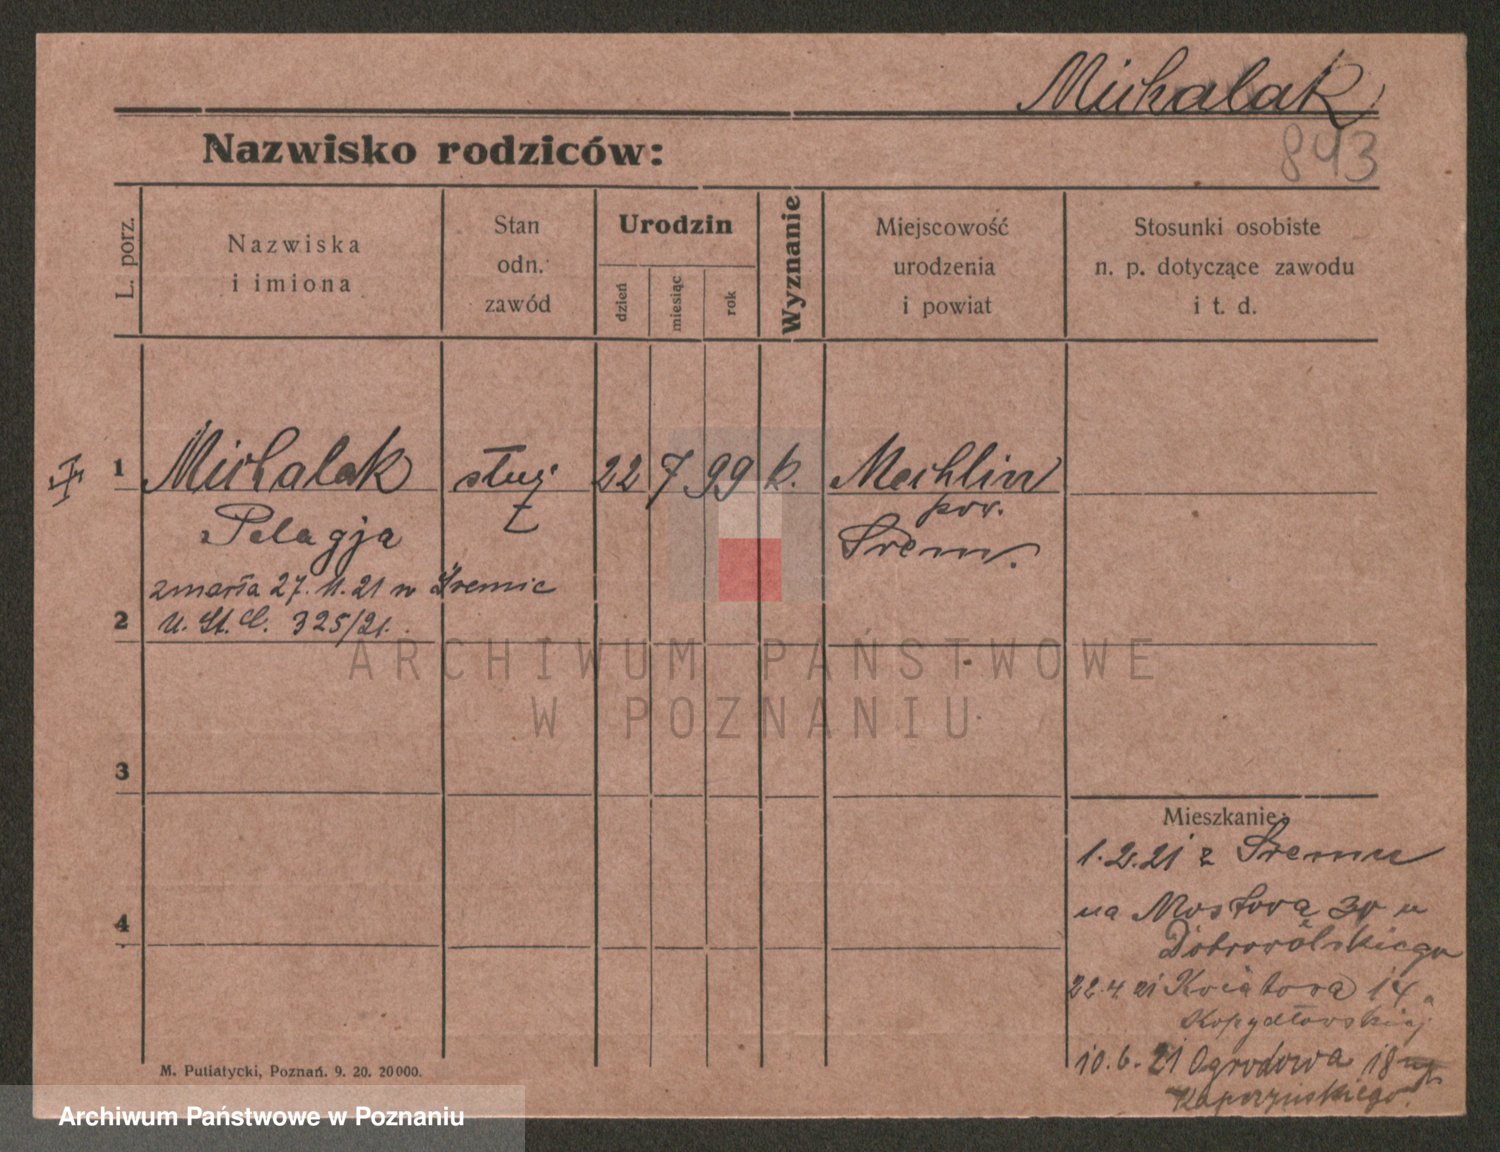 Michalak
843
Nazwisko rodziców:
L. porz.
Nazwiska
i imiona
Stan
odn.
zawód
Urodzin
dzień
miesiąc
rok
Wyznanie
Miejscowość
urodzenia
i powiat
Stosunki osobiste
n. p. dotyczące zawodu
i t. d.
1 Michalak służ 22 7 99 k. Mechlin
Pelagja pow.
Śrem.
zmarła 27.11.21 w Śremie
2 U. St. C. 325/21.
ARCHIWUM PAŃSTWOWE
W POZNANIU
3
Mieszkanie:
1.2.21 z Śremu
4
na Mostową u
Dobrowolskiego
22.4.21 Kwiatowa 14
Kopydłowskiej
10.6.21 Ogrodowa 18
Kaperzyńskiego.
M. Putiatycki, Poznań. 9. 20. 20000.
Archiwum Państwowe w Poznaniu